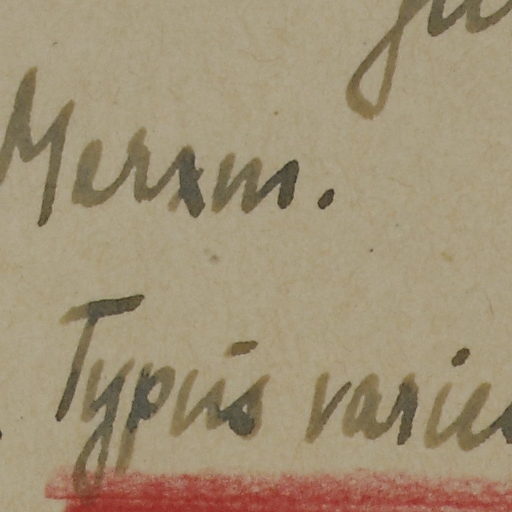 Merxm.
Typus varie